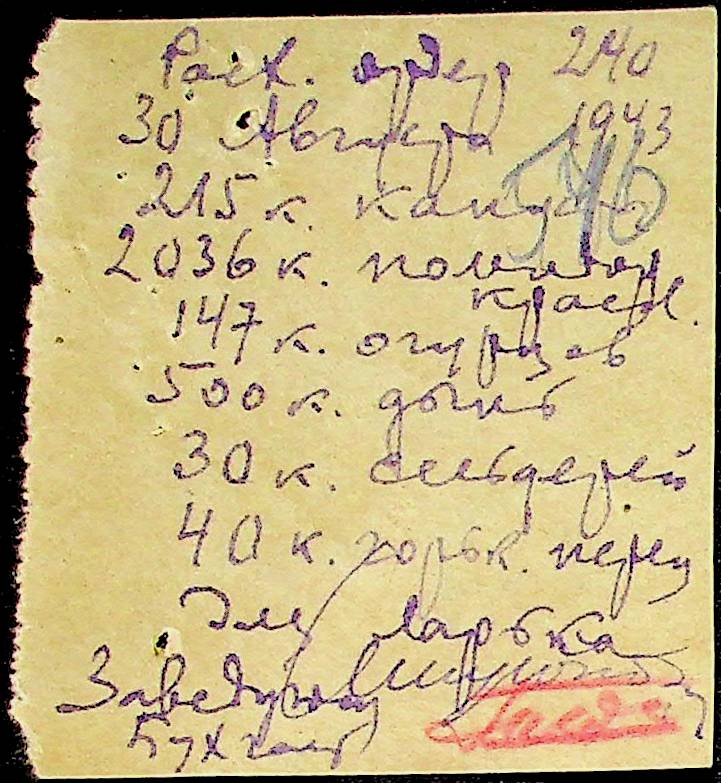 Расх. ордер 240
30 Августа 1943
215 к. капуст
2036 к. помидор
красн.
147 к. огурцов
500 к. дынь
30 к. сельдерей
40 к. горьк. перец
Для ларька
Заведующ
Бухгалт